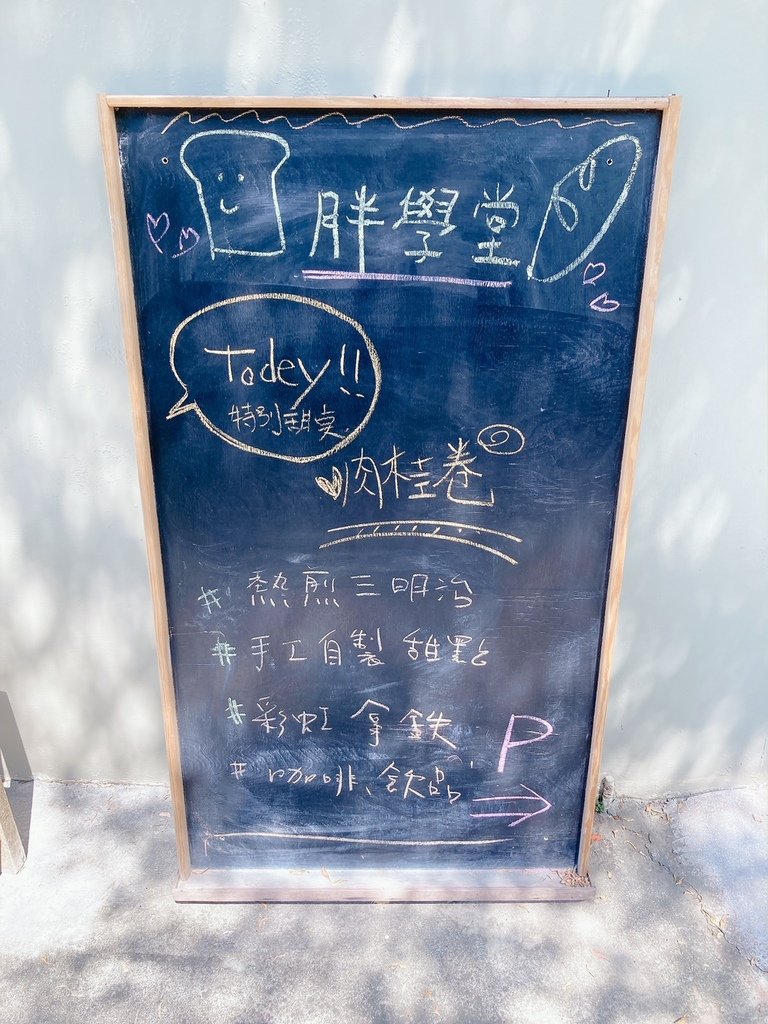 胖學堂
Today!!
特別甜点
肉桂卷
# 熱煎三明治
# 手工自製甜點
# 彩虹拿鐵
# 咖啡、飲品
P